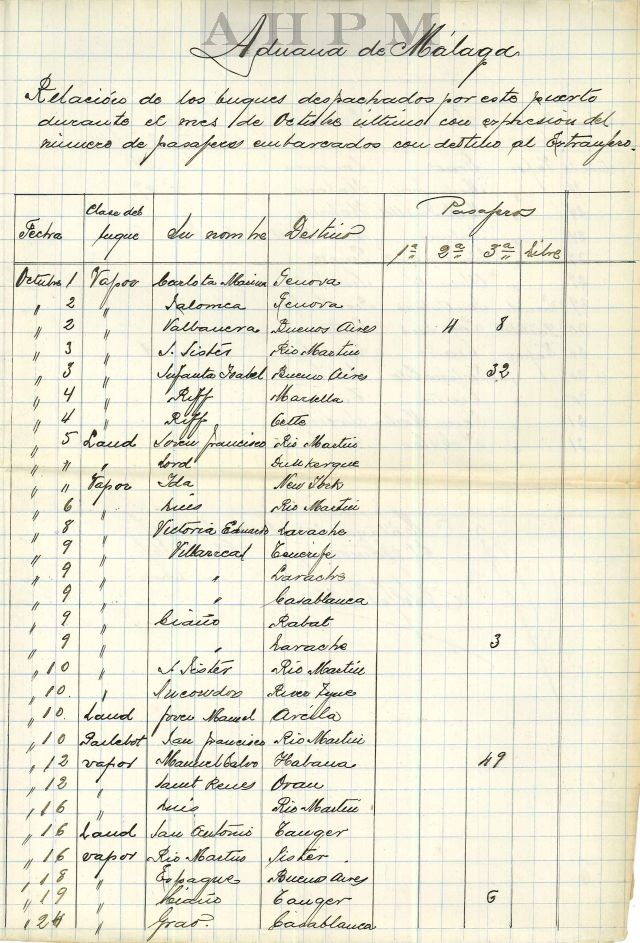 AHPM
Aduana de Málaga
Relación de los buques despachados por este puerto
durante el mes de Octubre último con expresion del
número de pasajeros embarcados con destino al Extranjero.
Clase del Pasajeros
Fecha buque Su nombre Destino 1ª 2ª 3ª Libre
Octubre 1 Vapor Carlota Génova
" 2 " Génova
" 2 " Valbanera Buenos Aires 4 8
" 3 " J. Sister Rio Martin
" 3 " Infanta Isabel Bueno Aires 32
" 4 " Riff Marsella
" 4 " Riff Cette
" 5 Laud Joven francisco Rio Martin
" " " Lord Dunkerque
" " Vapor Ida New York
" 6 " Luis Rio Martin
" 8 " Victoria Eduardo Larache
" 9 " Villarreal Tenerife
" 9 " " Larache
" 9 " " Casablanca
" 9 " Ciaño Rabat
" 9 " " Larache 3
" 10 " J. Sister Rio Martin
" 10 " River Tyne
" 10 Laud joven Manuel Arcila
" 10 Pailebot San francisco Rio Martin
" 12 vapor Manuel Calvo Habana 49
" 12 " Oran
" 16 " Luis Rio Martin
" 16 Laud San Antonio Tanger
" 16 vapor Rio Martin Sister
" 18 " Espagne Buenos Aires
" 19 " Ciaño Tanger 6
" 24 " Grao. Casablanca